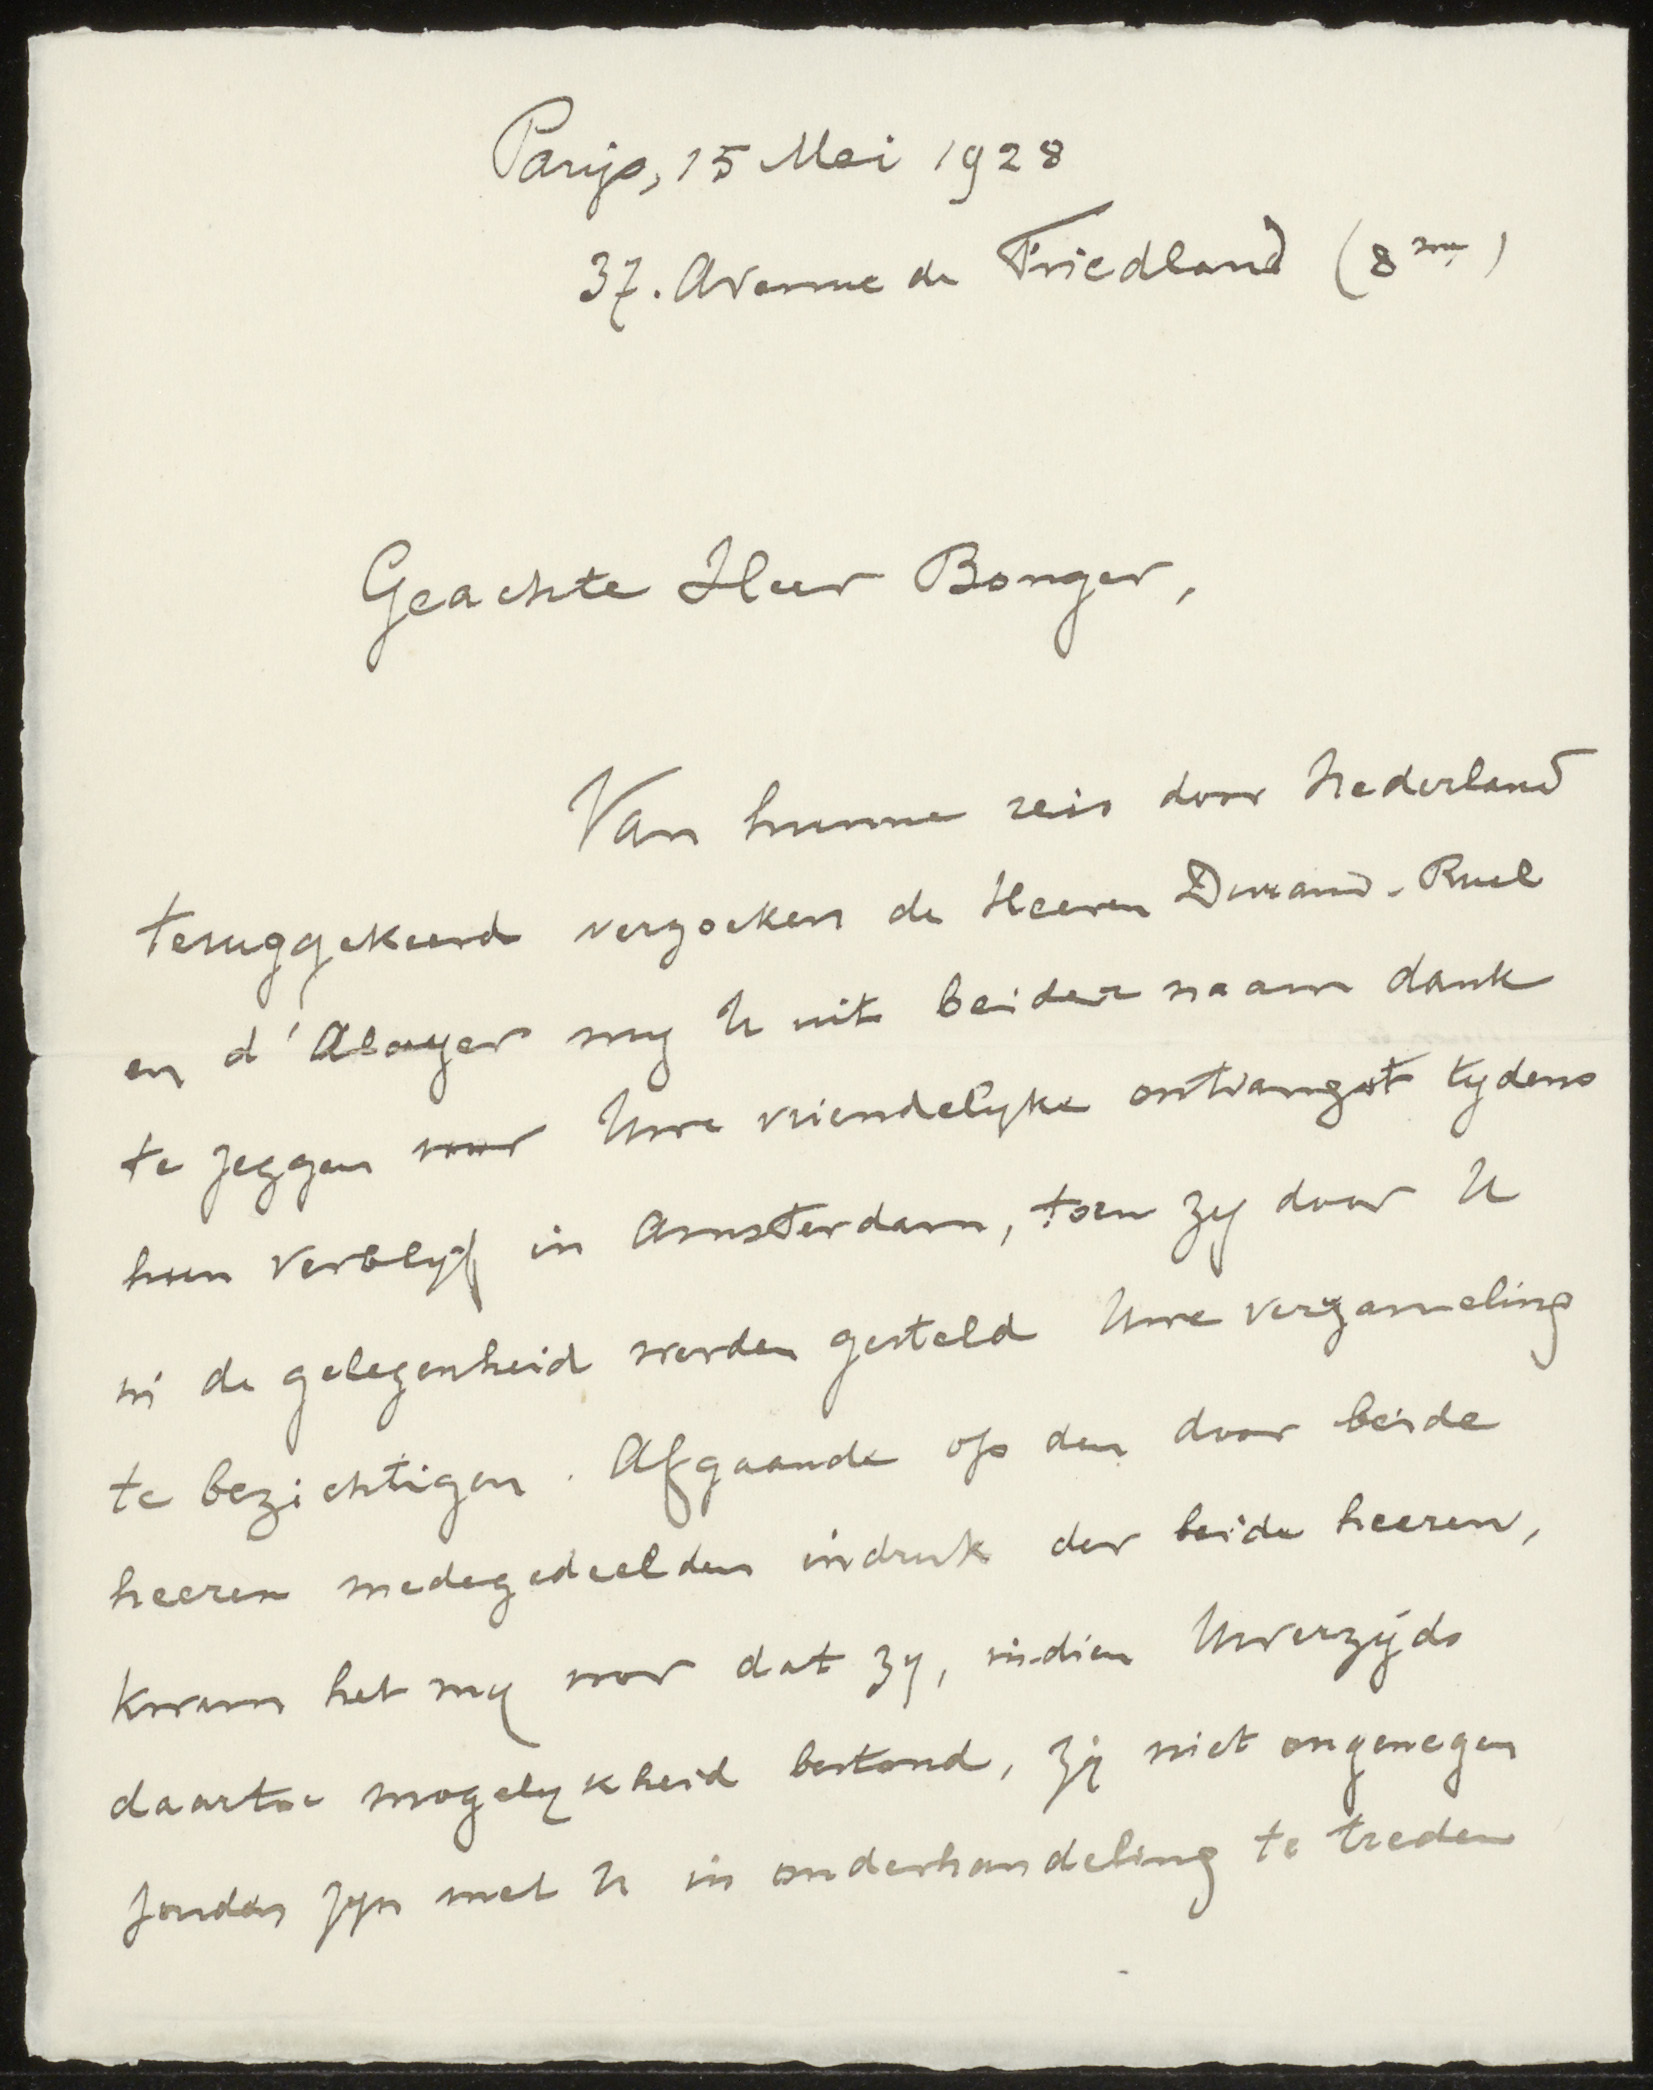 Parijs, 15 Mei 1928
37. Avenue de Friedland (8me)
Geachte Heer Bonger,
Van hunne reis door Nederland
teruggekeerd verzoeken de Heeren Durand-Ruel
en d'Alayer my U uit beider naam dank
te zeggen voor Uwe vriendelyke ontvangst tydens
hun verblyf in Amsterdam, toen zy door U
in de gelegenheid werden gesteld Uwe verzameling
te bezichtigen. Afgaande op den door beide
heeren medegedeelden indruk der beide heeren,
kwam het my voor dat zy, indien Uwerzyds
daartoe mogelykheid bestond, zy niet ongenegen
zouden zyn met U in onderhandeling te treden